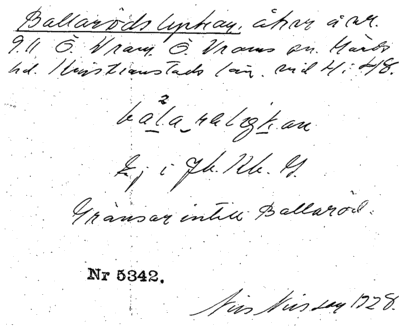 Ballaröds lyckan, åker å nr.
9.11 Ö. Vram, Ö. Vrams sn. Gärds
hd. Kristianstads län. vid H. i 48.
Ej i Jb. Kb. G
Gränsar intill Ballaröd.
Nr 5342.
Nils Nilsson 1928.